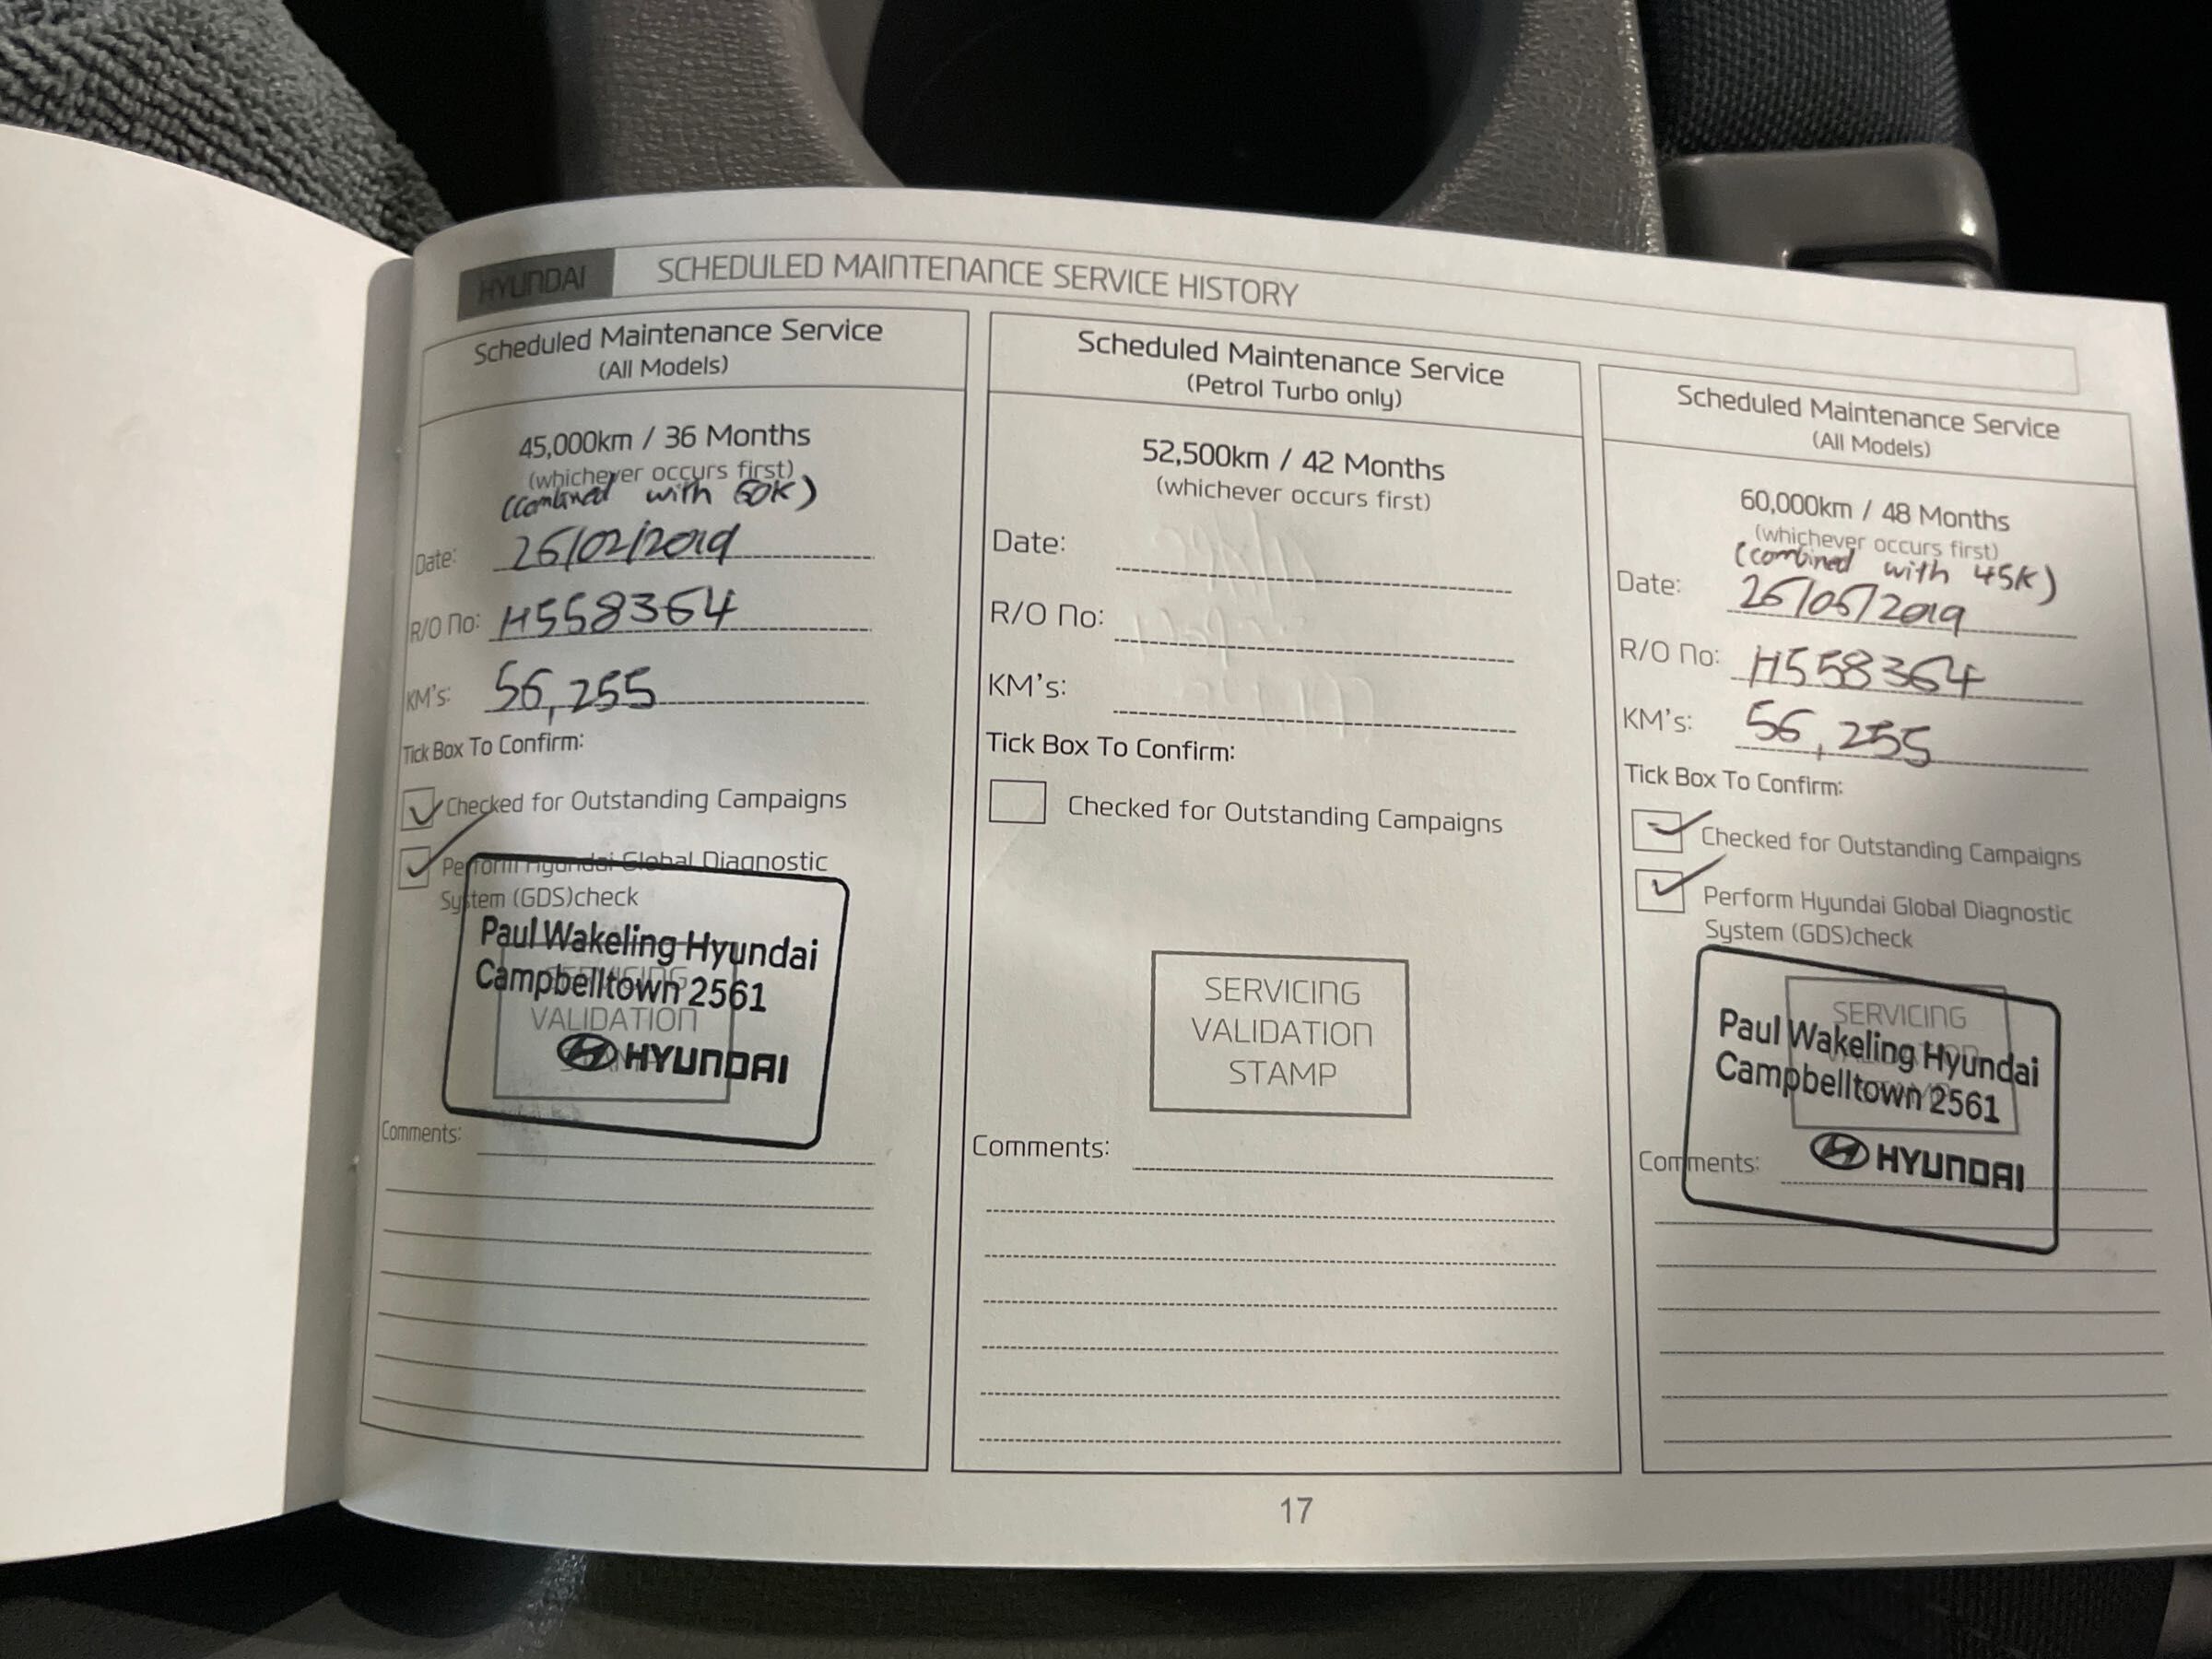 HYUNDAI
SCHEDULED MAINTENANCE SERVICE HISTORY
Scheduled Maintenance Service
(All Models)
45,000km / 36 Months
(whichever occurs first)
(combined with 60K)
Date: 26/02/2019
R/O No: H558364
KM's: 56,255
Tick Box To Confirm:
Checked for Outstanding Campaigns
Perform Hyundai Global Diagnostic
System (GDS)check
Paul Wakeling Hyundai
Campbelltown 2561
SERVICING
VALIDATION
HYUNDAI
Comments:
Scheduled Maintenance Service
(Petrol Turbo only)
52,500km / 42 Months
(whichever occurs first)
Date:
R/O No:
KM's:
Tick Box To Confirm:
Checked for Outstanding Campaigns
SERVICING
VALIDATION
STAMP
Comments:
Scheduled Maintenance Service
(All Models)
60,000km / 48 Months
(whichever occurs first)
(combined with 45K)
Date: 26/05/2019
R/O No: H558364
KM's: 56,255
Tick Box To Confirm:
Checked for Outstanding Campaigns
Perform Hyundai Global Diagnostic
System (GDS)check
SERVICING
Paul Wakeling Hyundai
Campbelltown 2561
HYUNDAI
Comments:
17